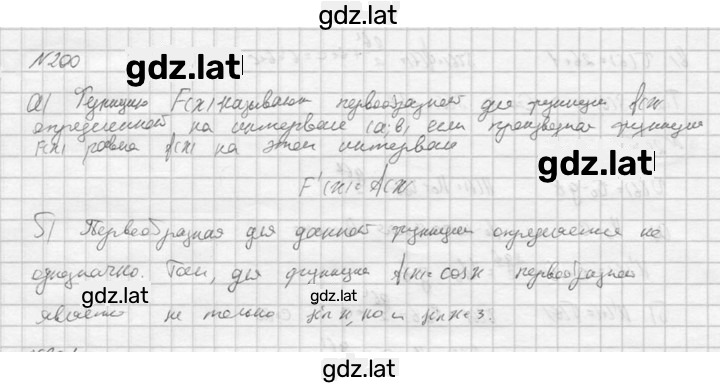 gdz.lat
№200
gdz.lat
а) Функцию F(x) называют первообразной для функции f(x)
определенной на интервале (a;b), если производная функции
F(x) равна f(x) на этом интервале
gdz.lat
F'(x)=f(x)
б) Первообразная для данной функции определяется не
однозначно. Так, для функции f(x)=cosx первообразной
gdz.lat gdz.lat
является не только sin x, но и sin x+3.
gdz.lat